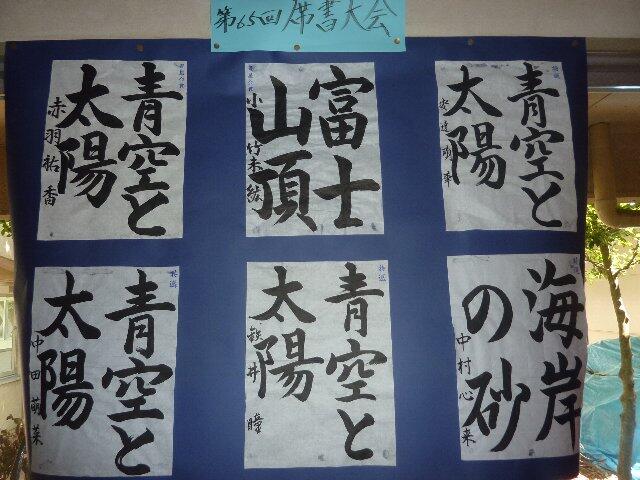 第65回席書大会
青空と
太陽
赤羽祐香
富士
山頂
特選
青空と
太陽
特選
青空と
太陽
中田萌菜
特選
青空と
太陽
鉄井 瞳
特選
海岸
の砂
中村心来